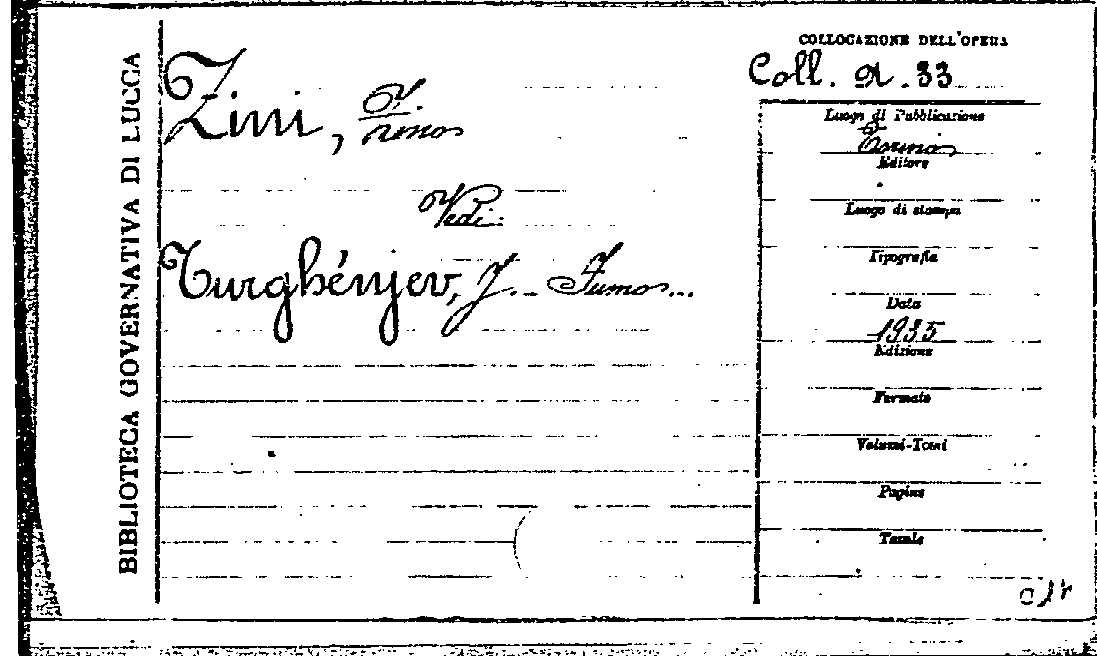 BIBLIOTECA GOVERNATIVA DI LUCCA
Zini,
Vedi:
Turghénjev, J. - Fumo...
COLLOCAZIONE DELL'OPERA
Coll. A. 33
Luogo di Pubblicazione
Torino
Editore
Luogo di stampa
Tipografia
Data
1935
Edizione
Formato
Volumi-Tomi
Pagine
Tavole